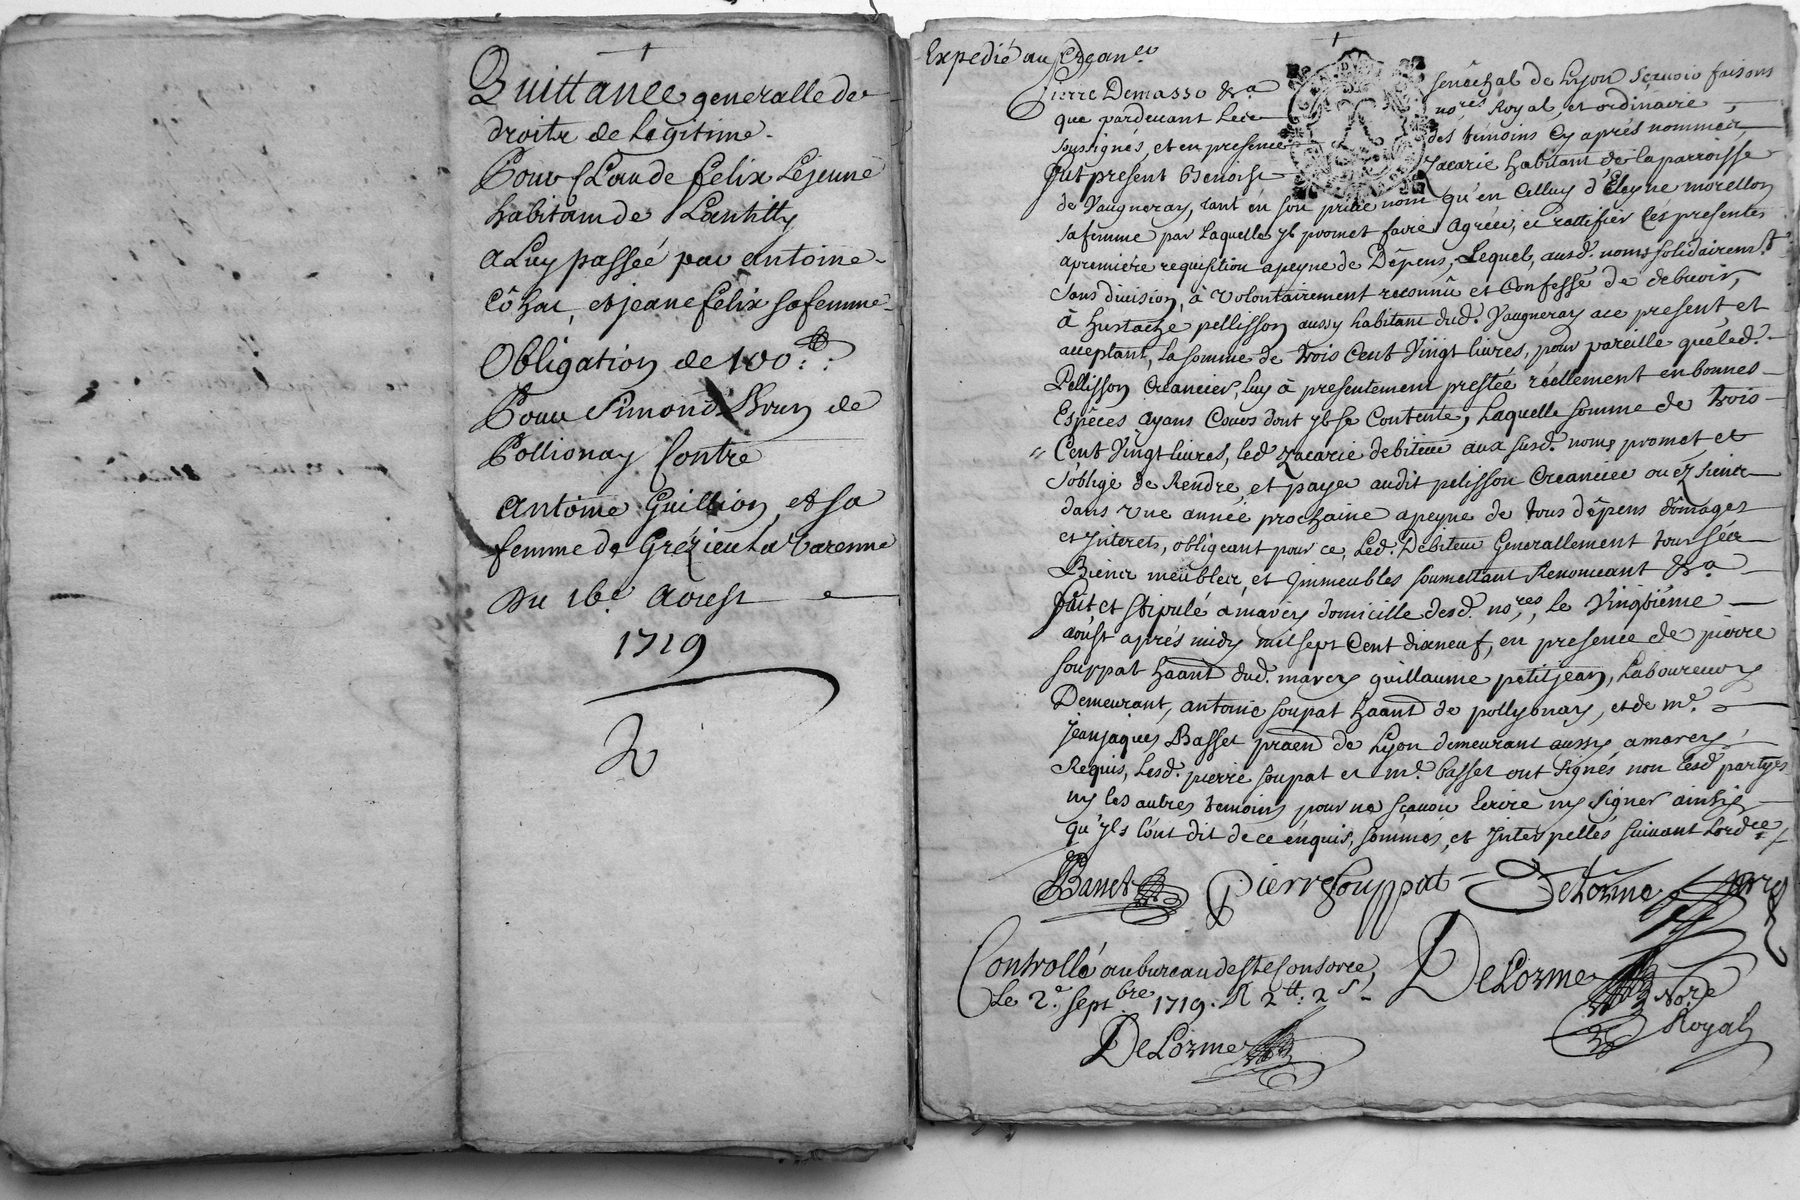 Quittance generalle de
droits de legitime.
Pour Claude felix Lejeune
habitant de Lantilly
a Luy passée par antoine
Côhat, et jeane felix sa femme
Obligation de 100.tt:
Pour Simond Brun de
Pollionay Contre
Antoine Guillion, et sa
femme de Grézieu La Varenne
Du 16e. Aoust
1719
2
Expedié au Crean.er
Pierre Demasso &ra senéchal de Lyon sçavoir faisons
que pardevant Les no.res Royal, et ordinaire
soussignés, et en presence des témoins Cy aprés nommés,
Fut present Benoist Zacarie habitant de la parroisse
de Vaugneray, tant en son privé nom qu'en Celluy d'Eleyne morellon
sa femme par Laquelle yl promet faire agréer, et rattifier Cés presentes
a premiére requisition apeyne de Dépens, Lequel, ausd. noms solidairem.t
sans division, à volontairement reconnû et Confessé de debvoir,
à hustache pellisson aussy habitant dud. Vaugneray ace present, et
acceptant, La somme de trois Cent Vingt livres, pour pareille que led.
Pellisson Creancier, luy à presentement prestée réellement en bonnes
Espéces ayans Cours dont yl se Contente, Laquelle somme de trois
Cent Vingt livres, led. Zacarie debiteur aux susd. noms promet et
s'oblige de Rendre, et payer audit pelisson Creancier ou éz siens
dans vne année prochaine apeyne de tous dépens dômages
et jnterets, obligeant pour ce, Led. Debiteur Generallement tous sés
Biens meubles, et jmmeubles soumettant Renonceant &ra
Fait et Stipulé à marcy domicille desd. no.res, Le Vingtiéme
aoust aprés midy mil sept Cent dixneuf, en presence de pierre
souppat haânt dud. marcy guillaume petitjean, Laboureur y
Demeurant, antoine soupat haânt de pollyonay, et de m.e
jean jaques Basset praen de Lyon demeurant aussy a marcy
Requis, Lesd. pierre soupat et m.e basset ont signés non Lesd. partyes
ny les autres temoins pour ne sçavoir Ecrire ny signer ainsi
qu'yls l'ont dit de ce enquis, sommés, et jnterpellés suivant Lord.ce
Basset Pierre Souppat DeLorme
Controllé au bureau de Ste Consorce,
Le 2.e sept.bre 1719. R 2tt: 2s.
DeLorme Nore
Royal
DeLorme